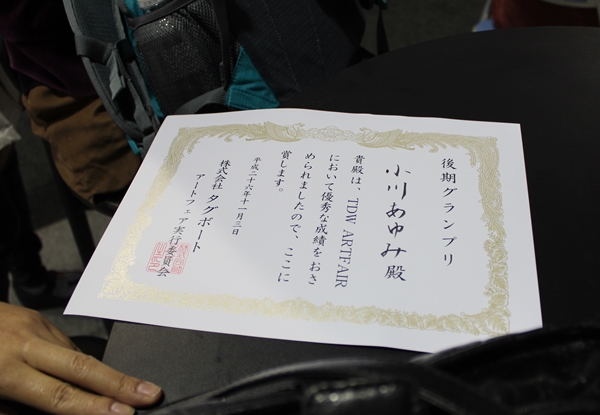 後期グランプリ
小川あゆみ殿
貴殿は、TDW ARTFAIR
において優秀な成績をおさ
められましたので、ここに
賞します。
平成二十六年十一月三日
株式会社 タグボート
アートフェア実行委員会